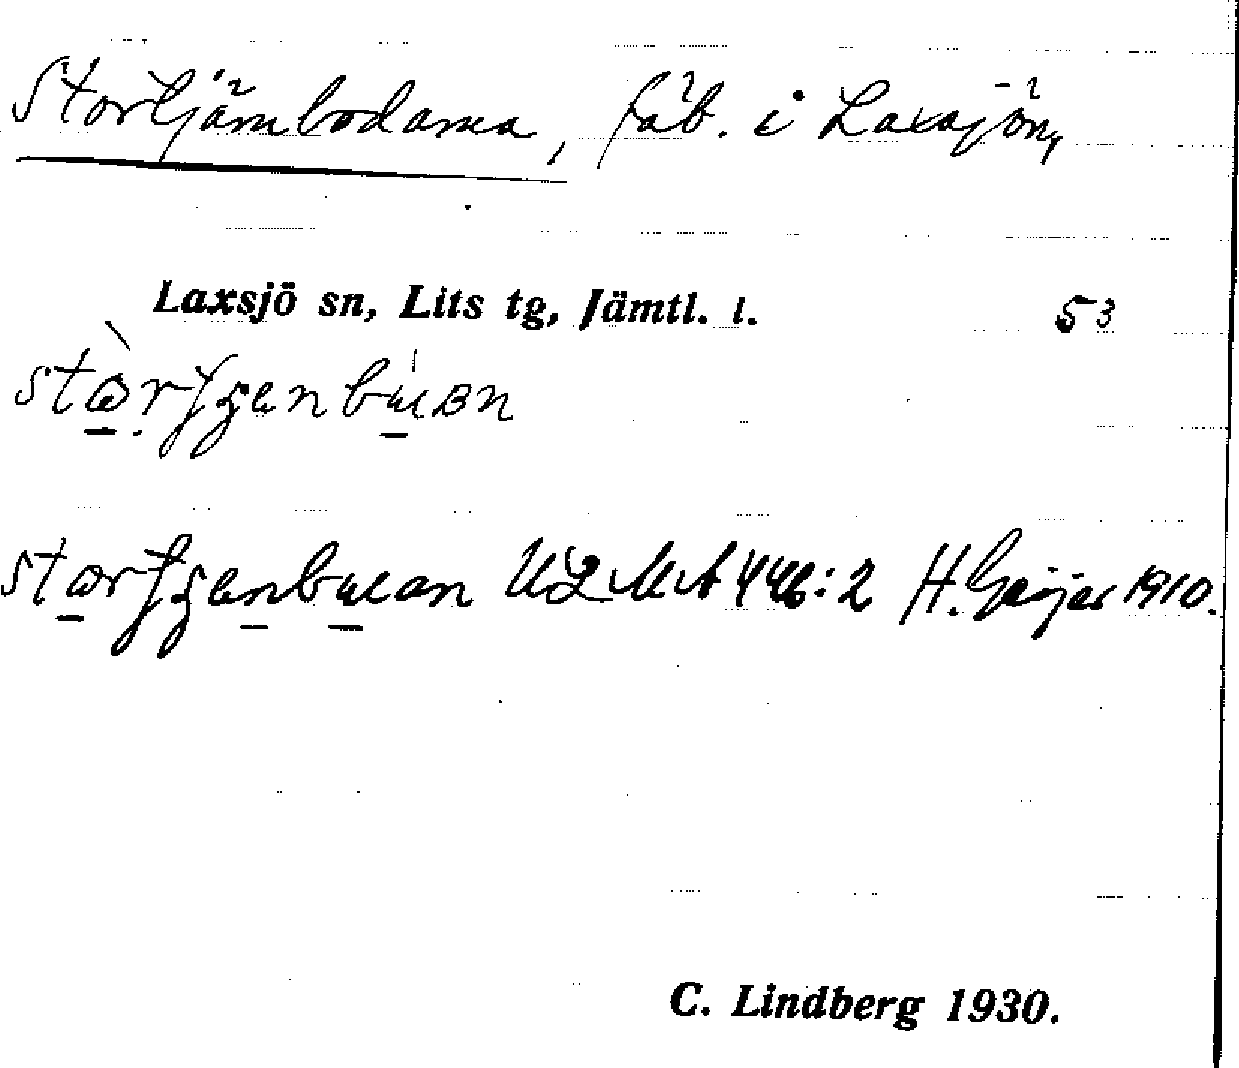 Stortjärnbodarna, fäb. i Laxsjön,
Laxsjö sn, Lits tg, Jämtl. l. 53
ULMA 446:2 H. Geijer 1910.
C. Lindberg 1930.